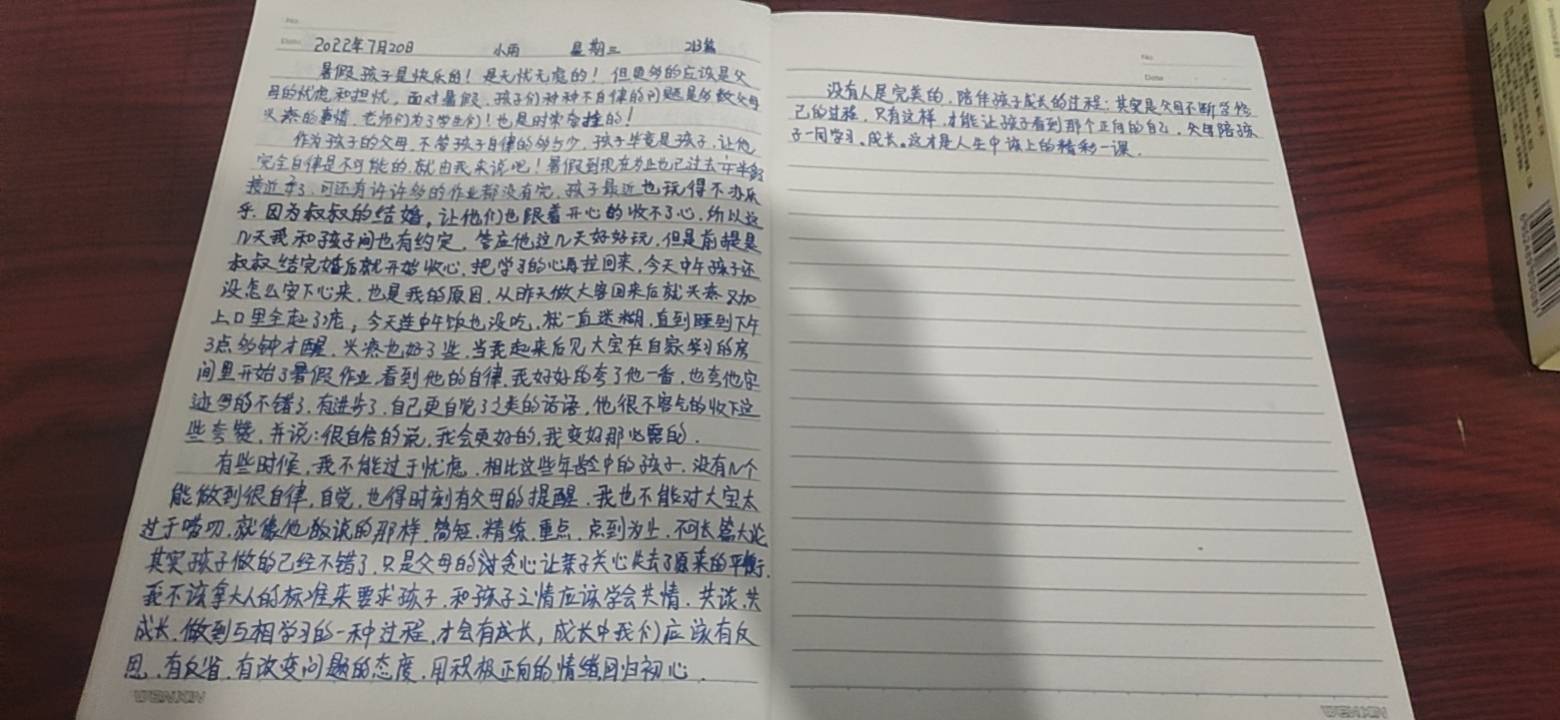 No.
Date
2022年7月20日 小雨 星期三 213篇
暑假,孩子是快乐的!是无忧无虑的!但更多的应该是父
母的忧虑和担忧,面对暑假,孩子们种种不自律的问题是多数父母
头疼的事情,老师们为了学生们!也是时常牵挂的!
作为孩子的父母,不管孩子自律的多与少,孩子毕竟是孩子,让他
完全自律是不可能的,就由我来说吧!暑假到现在为止也已过去
接近半了,可还有许许多的作业都没有完,孩子最近也玩得不亦乐
乎,因为叔叔的结婚,让他们也跟着开心的收不了心,所以这
几天我和孩子间也有约定,答应他这几天好好玩,但是前提是
叔叔结完婚后就开始收心,把学习的心再拉回来,今天中午孩子还
没怎么安下心来,也是我的原因,从昨天做大客回来后就头疼又加
上口里全起了疮,今天连中午饭也没吃,就一直迷糊,直到睡到下午
3点多钟才醒,头疼也好了些,当我起来后见大宝在自家学习的房
间里开始了暑假作业,看到他的自律,我好好的夸了他一番,也夸他字
迹写的不错了,有进步了,自己更自觉了之类的话语,他很不客气的收下这
些夸赞,并说:很自信的说,我会更好的,我变好那必需的.
有些时候,我不能过于忧虑,相比这些年龄中的孩子,没有几个
能做到很自律,自觉,也得时刻有父母的提醒,我也不能对大宝太
过于唠叨,就像他敬说的那样,简短,精练,重点,点到为止,不可长篇大论
其实孩子做的已经不错了,只是父母的贪心让亲子关心失去了原来的平衡,
我不该拿大人的标准来要求孩子,和孩子之情应该学会共情,共谈,共
成长,做到互相学习的一种过程,才会有成长,成长中我们应该有反
思,有反省,有改变问题的态度,用积极正向的情绪回归初心.
WENXIN
No.
Date
没有人是完美的,陪伴孩子成长的过程:其实是父母不断学修
己的过程,只有这样,才能让孩子看到那个正向的自己,父母陪孩
子一同学习、成长。这才是人生中该上的精彩一课.
WENXIN